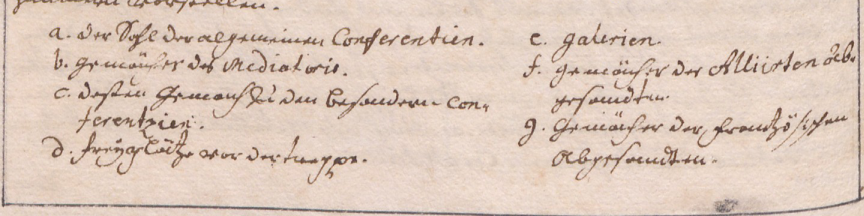 zimmern vorstellen.
a. der Sahl der algemeinen Conferentien.
b. gemächer des Mediatoris.
c. dessen Gemach zu den besondern Con-
ferentzien.
d. freyplätze vor der treppe.
e. galerien.
f. gemächer der Alliirten Ab-
gesandten.
g. Gemächer der frantzösischen
Abgesandten.